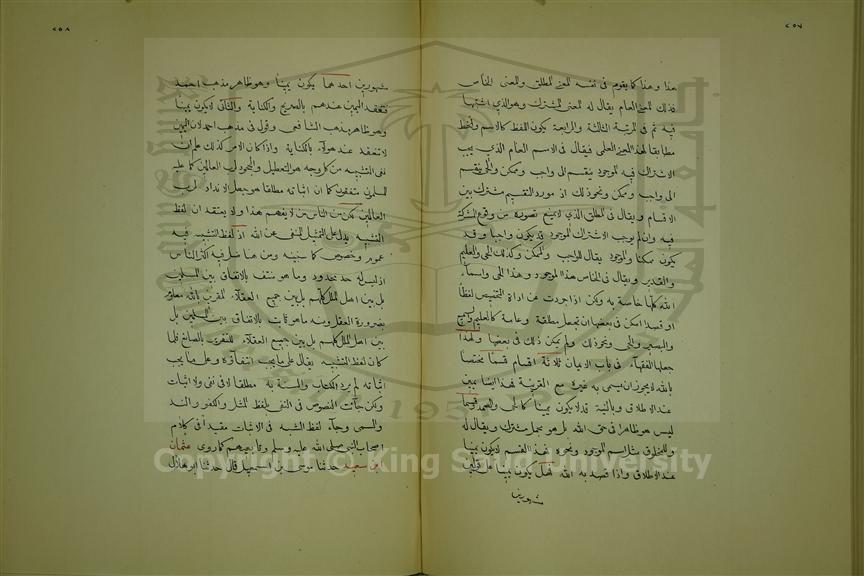 ٢٥٧
هذا وهذا كما يقوم في نفسه المعنى المطلق والمعنى الخاص
فذلك المعنى العام يقال له المعنى المشترك وهو الذي اشتبها
فيه ثم في المرتبة الثالثة والرابعة يكون اللفظ كالاسم والخط
مطابقا لهذا المعنى العلمي فيقال في الاسم العام الذي يجب
الاشتراك فيه الموجود ينقسم الى واجب وممكن والحي ينقسم
الى واجب وممكن ونحو ذلك اذ مورد التقسيم مشترك بين
الاقسام ويقال في المطلق الذي لا يمنع تصوره من وقوع الشركة
فيه وان لم يوجب الاشتراك الموجود قد يكون واجبا وقد
يكون ممكنا والموجود يقال للواجب والممكن وكذلك الحي والعليم
والقدير ويقال في الخاص هذا الموجود وهذا الحي واسماء
الله كلها خاصة به ولكن اذا جردت عن اداة التخصيص لفظاً
او قصدا امكن في بعضها ان تجعل مطلقة وعامة كالعليم والسميع
والبصير والحي ونحو ذلك ولم يمكن ذلك في بعضها ولهذا
جعلها الفقهاء في باب الايمان ثلاثة اقسام قسما مختصا
بالله لا يجوز ان يسمى به غيره مع القرينة فهذا ايضا يمين
عند الاطلاق وبالنية قد لا يكون يمينا كالحي والصمد وقسما
ليس هو ظاهرا في حق الله بل هو مجمل مشترك ويقال له
وللمخلوق مثل اسم الموجود ونحوه فهذا القسم لا يكون يمينا
عند الاطلاق واذا قصد به الله فهل يكون يمينا على قولين
مشهورين
٢٥٨
مشهورين احدهما يكون يمينا وهو ظاهر مذهب احمد
فتنعقد اليمين عندهم بالصريح والكناية والثاني لا يكون يمينا
وهو ظاهر مذهب الشافعي وقول في مذهب احمد لان اليمين
لا تنعقد عند هولاء بالكناية واذا كان الامر كذلك علم ان
نفي التشبيه من كل وجه هو التعطيل والجحود لرب العالمين كما عليه
المسلمون متفقون كما ان اثباته مطلقا هو جعل الانداد لرب
العالمين لكن من الناس من لا يفهم هذا ولا يعتقد ان لفظ
التشبيه يدل على التمثيل المنفي عن الله اذ لفظ التشبيه فيه
عموم وخصوص كما سنبينه ومن هنا ضل فيه اكثر الناس
اذ ليس له حد محدود وما هو منتف بالاتفاق بين المسلمين
بل بين اهل الملل كلهم بل بين جميع العقلاء المقرين بالله معلوم
بضرورة العقل ومنه ما هو ثابت بالاتفاق بين المسلمين بل
بين اهل الملل كلهم بل بين جميع العقلاء المقرين بالصانع فلما
كان لفظ التشبيه يقال على ما يجب انتفاؤه وعلى ما يجب
اثباته لم يرد الكتاب والسنة به مطلقا لا في نفي ولا اثبات
ولكن جاءت النصوص في النفي بلفظ المثل والكفو والند
والسمي وجاء لفظ الشبه في الاثبات مقيدا في كلام
اصحاب النبي صلى الله عليه وسلم وتابعيهم كما روى عثمان
ابن سعيد حدثنا موسى بن اسمعيل قال حدثنا ابو هلال
King Saud University
1957